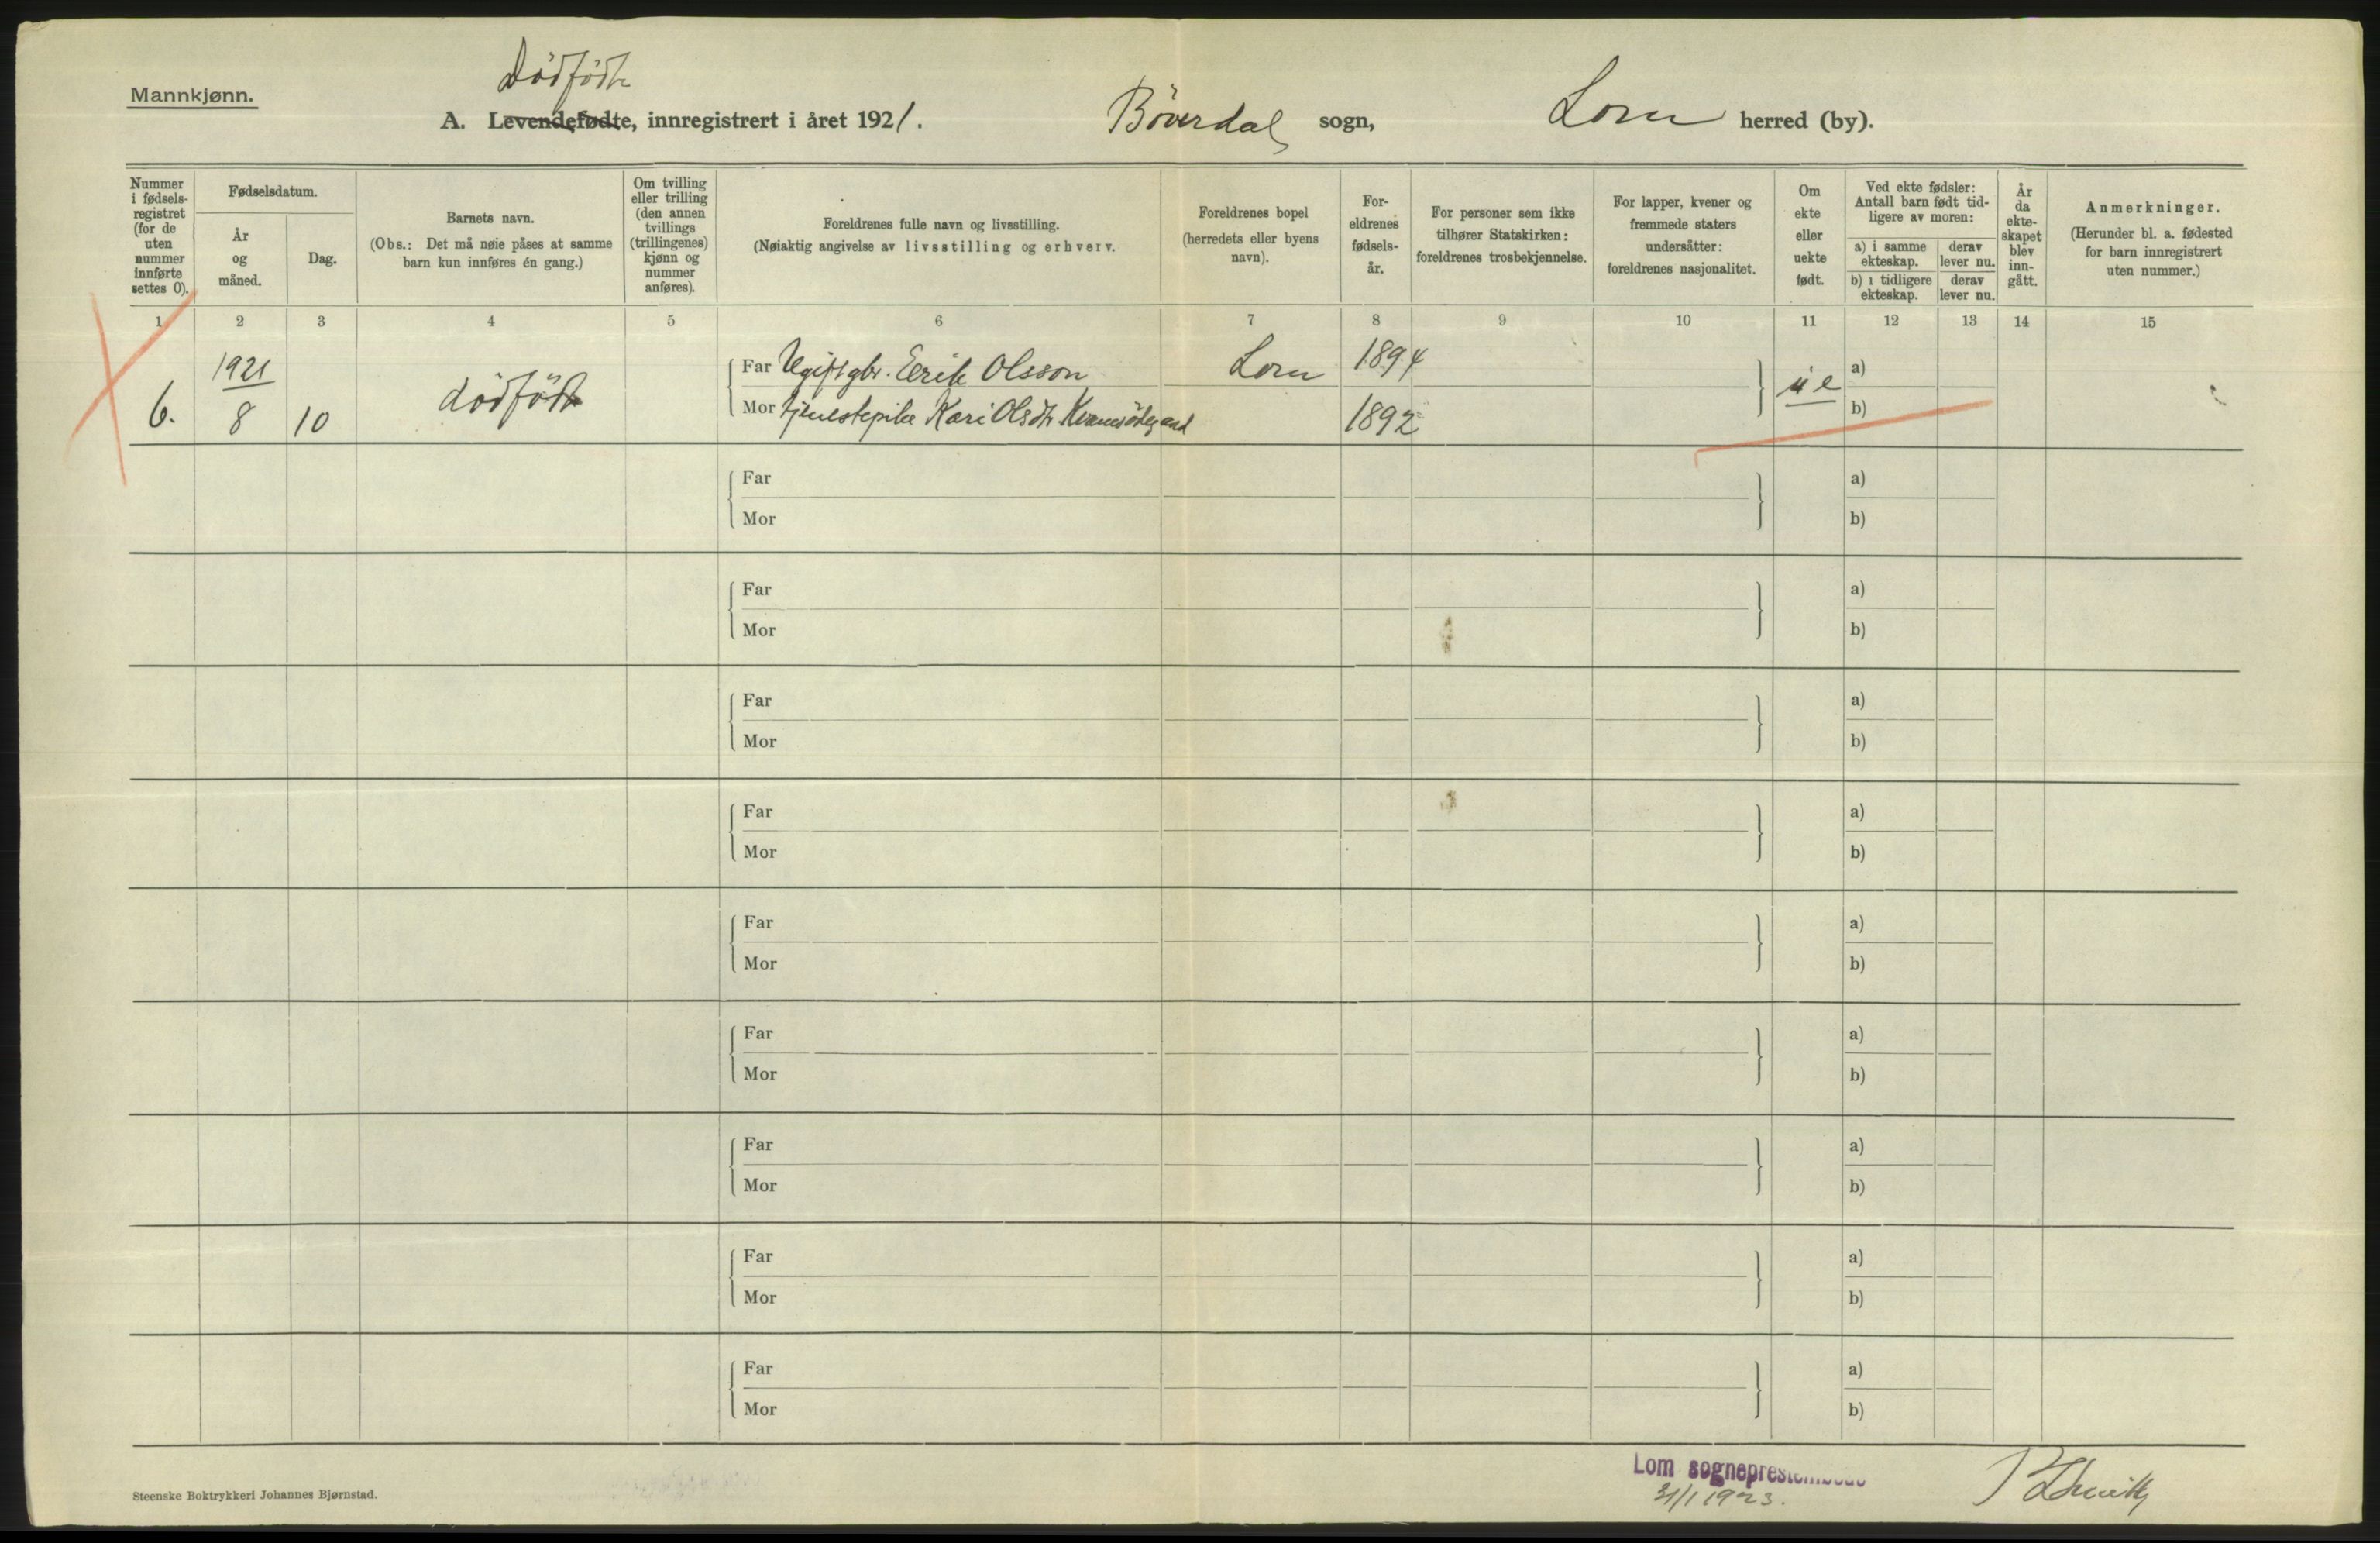 Mannkjønn.
Dödfödte
A. Levendefødte, innregistrert i året 1921. Böverdal sogn, Lom herred (by).
Nummer i fødsels-registret (for de uten nummer innførte settes 0).
Fødselsdatum.
År og måned.
Dag.
Barnets navn.
(Obs.: Det må nøie påses at samme barn kun innføres én gang.)
Om tvilling eller trilling (den annen tvillings (trillingenes) kjønn og nummer anføres).
Foreldrenes fulle navn og livsstilling.
(Nøiaktig angivelse av livsstilling og erhverv.
Foreldrenes bopel (herredets eller byens navn).
For-eldrenes fødsels-år.
For personer som ikke tilhører Statskirken: foreldrenes trosbekjennelse.
For lapper, kvener og fremmede staters undersåtter: foreldrenes nasjonalitet.
Om ekte eller uekte født.
Ved ekte fødsler: Antall barn født tid-ligere av moren:
a) i samme ekteskap.
derav lever nu.
b) i tidligere ekteskap.
derav lever nu.
År da ekte-skapet blev inn-gått.
Anmerkninger.
(Herunder bl. a. fødested for barn innregistrert uten nummer.)
1 2 3 4 5 6 7 8 9 10 11 12 13 14 15
6. 1921 8 10 dödfödt
Far Ugift gbr. Erik Olsson Lom 1894 a)
Mor tjenestepike Kari Olsdtr 1892 b)
ue
Far a)
Mor b)
Far a)
Mor b)
Far a)
Mor b)
Far a)
Mor b)
Far a)
Mor b)
Far a)
Mor b)
Far a)
Mor b)
Far a)
Mor b)
Far a)
Mor b)
Steenske Boktrykkeri Johannes Bjørnstad.
Lom sogneprestembede
31/1 1923.